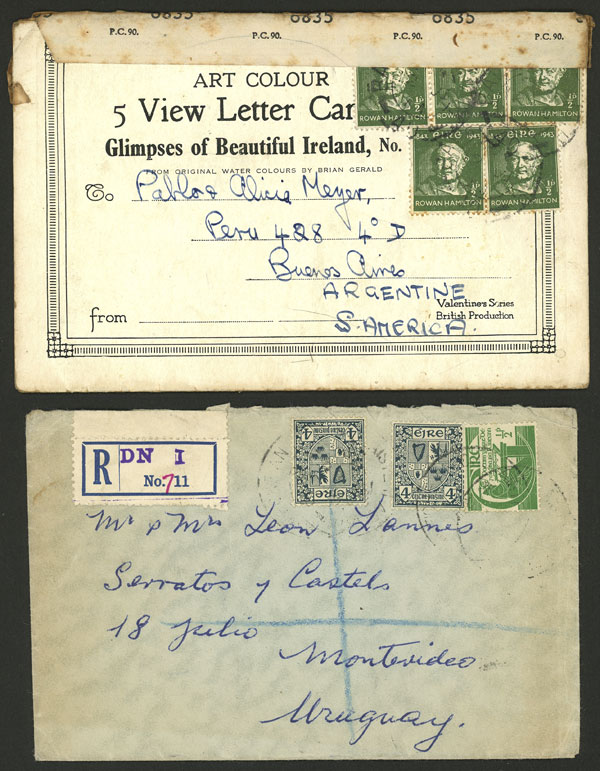 6835 6835 6835 6835
P.C. 90. P.C. 90. P.C. 90. P.C. 90.
ART COLOUR
5 View Letter Car
Glimpses of Beautiful Ireland, No.
FROM ORIGINAL WATER COLOURS BY BRIAN GERALD
½p ½p ½p
ROWAN HAMILTON ROWAN HAMILTON ROWAN HAMILTON
éire 1943 éire 1943
½p ½p
ROWAN HAMILTON ROWAN HAMILTON
To Pablo & Alicia Meyer,
Peru 428 4° D
Buenos Aires
ARGENTINE
S. AMERICA.
from
Valentine's Series
British Production
R DN I
No. 711
4 4
éire
éire
4 4
½p
Mr & Mrs Leon Lannes
Serratos y Castels
18 Julio
Montevideo
Uruguay.